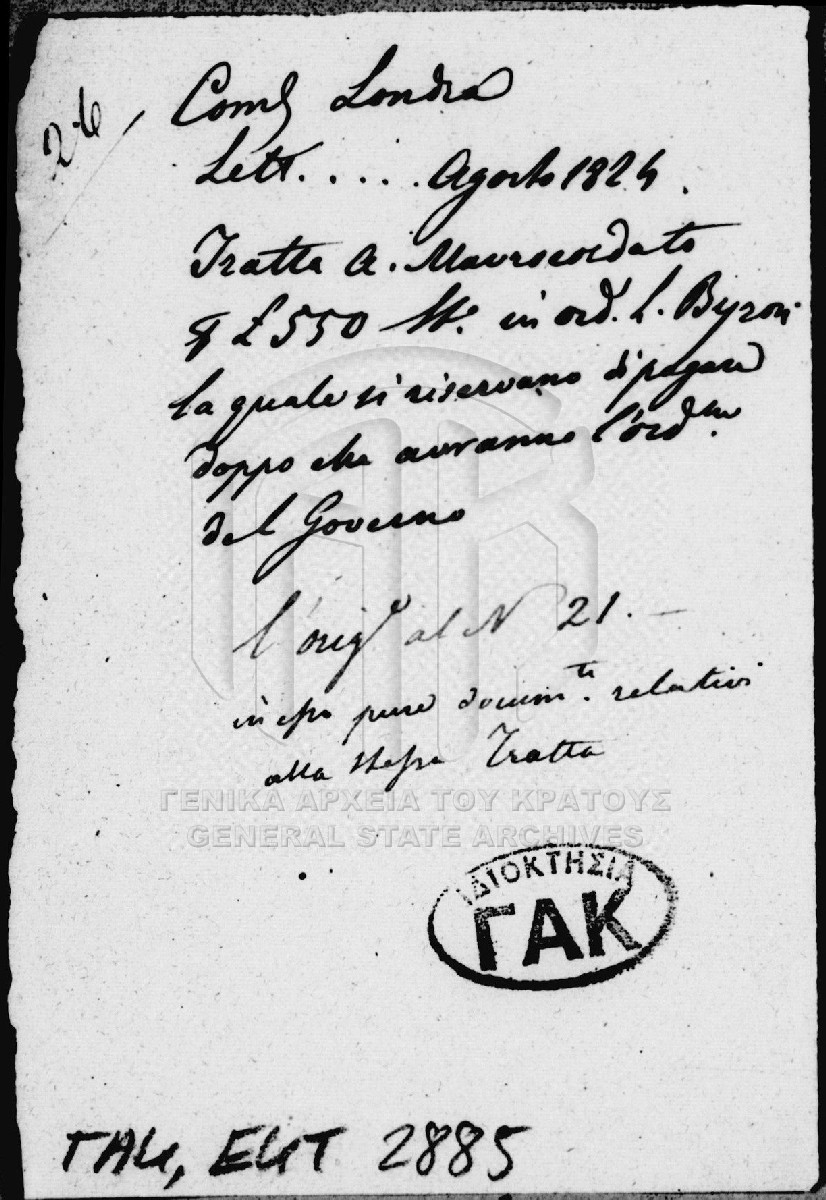 26
Com.e Londra
Lett. . . . . Agosto 1824.
Tratta A. Maurocordato
£ 550 St. in ord. L. Byron
la quale si riservano di pagare
doppo che avranno l'ord.ne
del Governo
l'orig.e al N 21. —
in essa pure docum.ti relativi
alla stessa Tratta
ΓΕΝΙΚΑ ΑΡΧΕΙΑ ΤΟΥ ΚΡΑΤΟΥΣ
GENERAL STATE ARCHIVES
ΙΔΙΟΚΤΗΣΙΑ
ΓΑΚ
ΓΑΚ, ΕΚΤ 2885